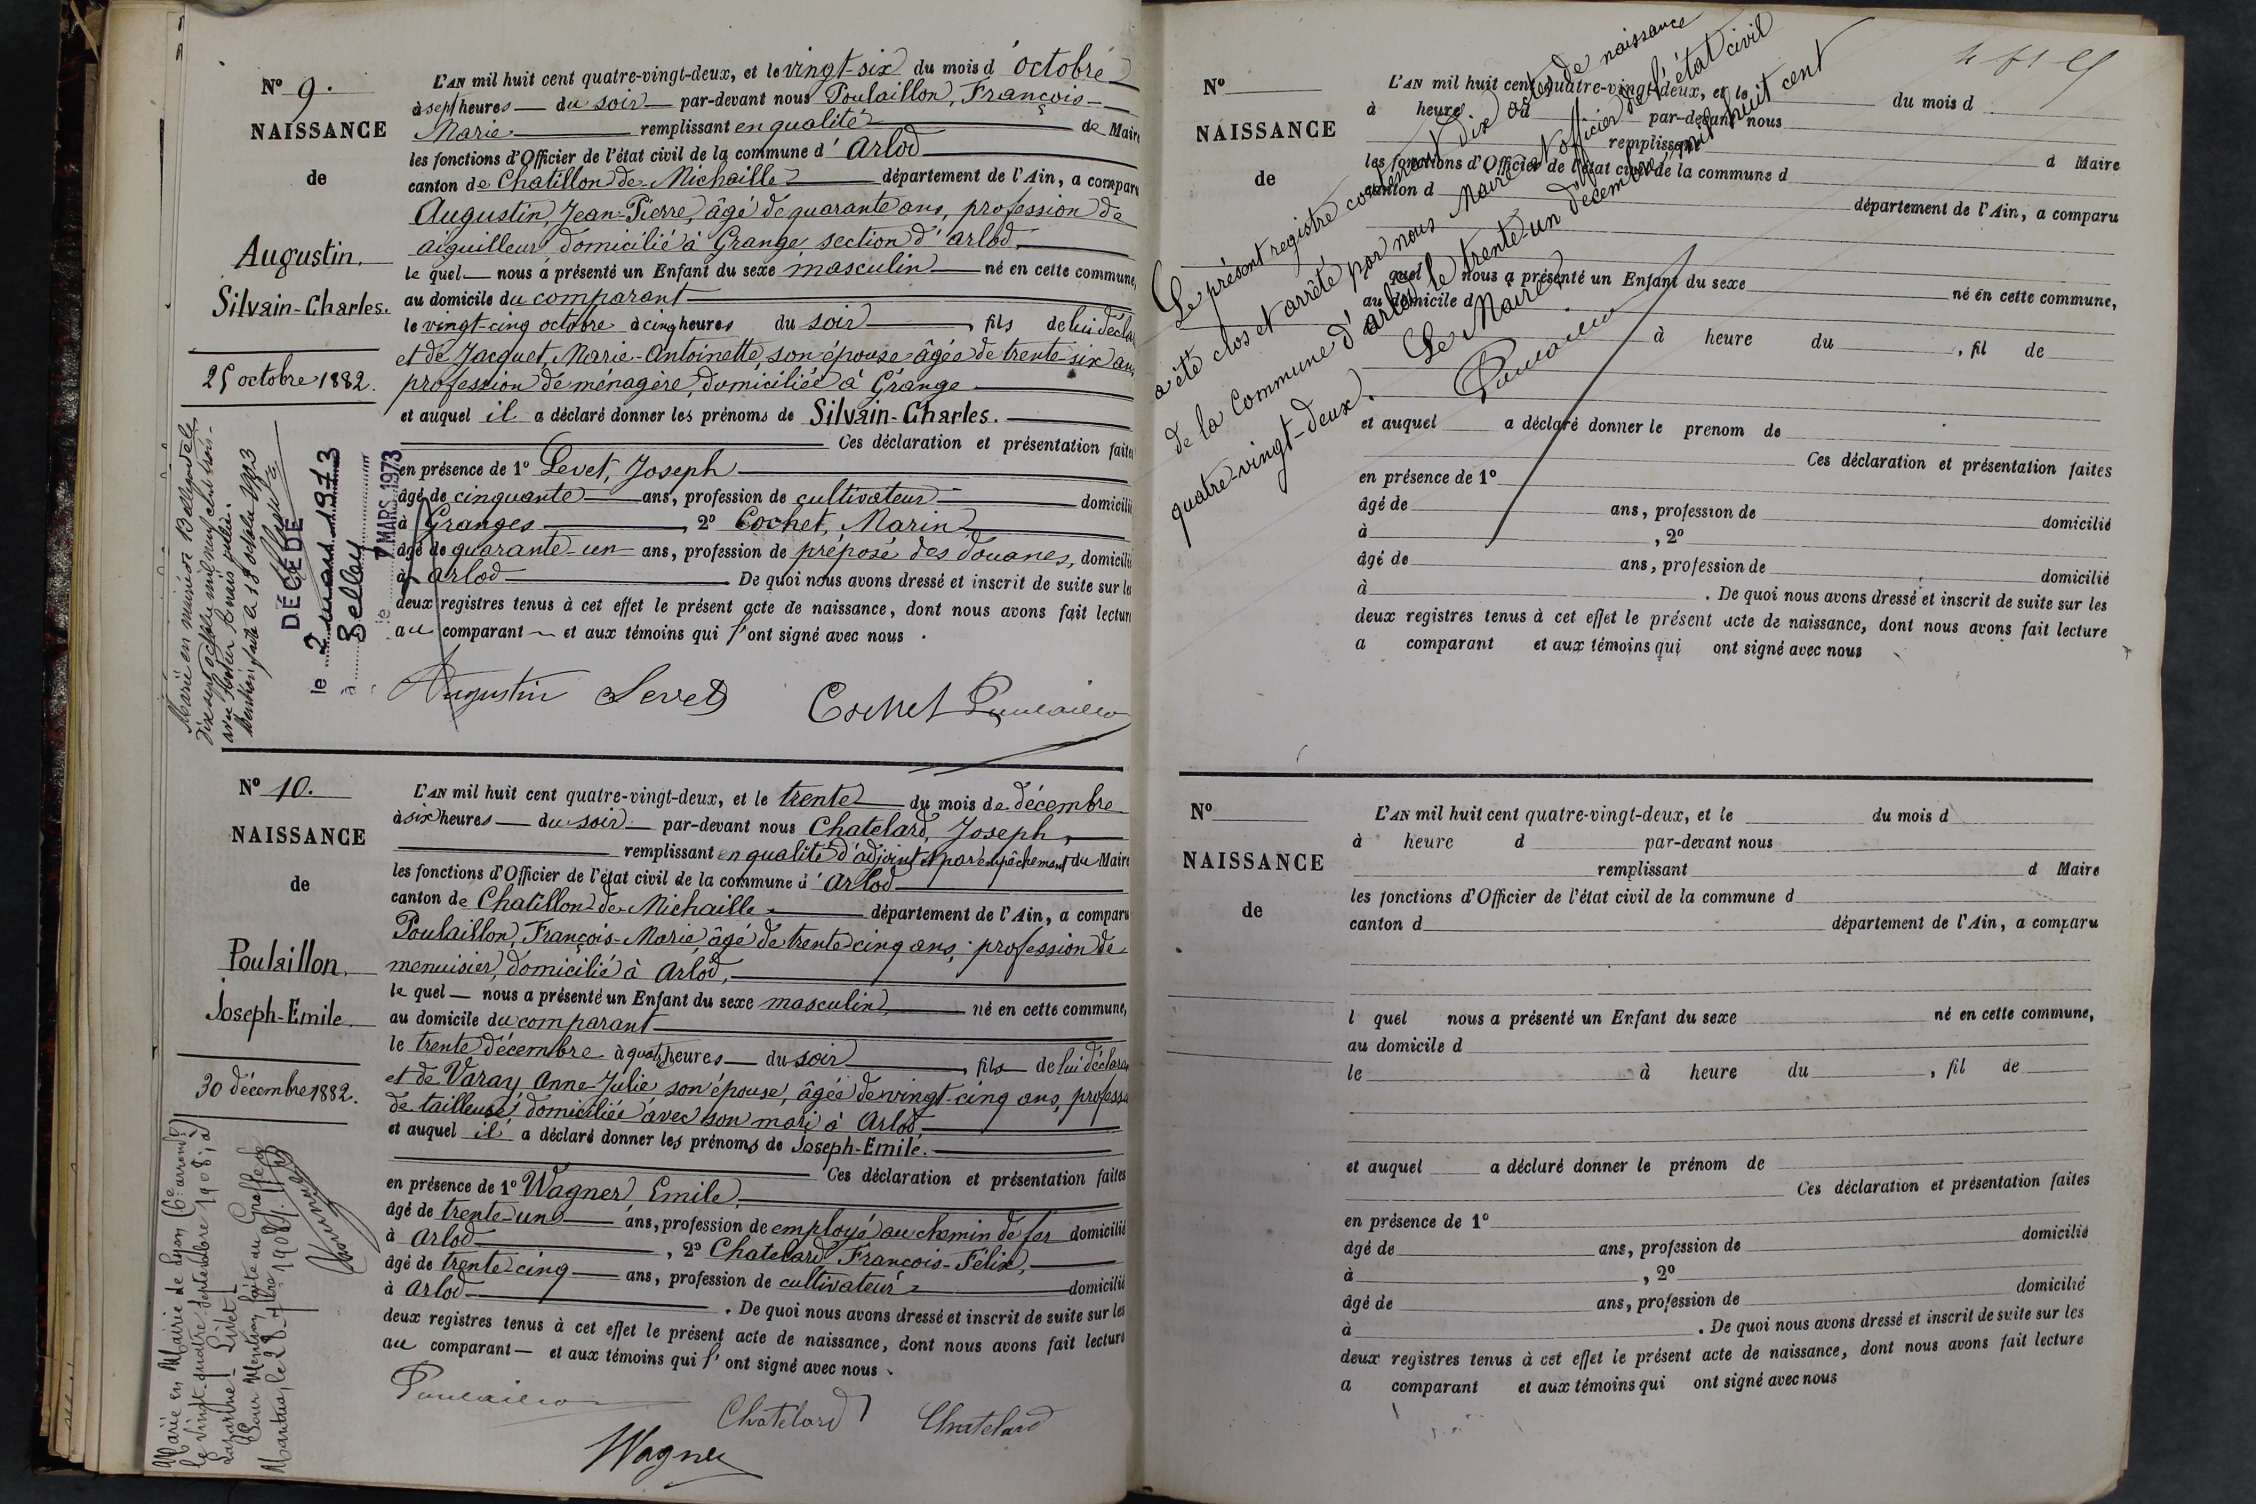 N° 9.
NAISSANCE
de
Augustin.
Silvain-Charles.
25 octobre 1882.
L'AN mil huit cent quatre-vingt-deux, et le vingt-six du mois d'octobre
à sept heures du soir par-devant nous Poulaillon, François-
Marie remplissant en qualité de Maire
les fonctions d'Officier de l'état civil de la commune d'Arlod
canton de Chatillon de Michaille département de l'Ain, a comparu
Augustin, Jean-Pierre, âgé de quarante ans, profession de
aiguilleur, domicilié à Grange section d'Arlod.
le quel nous a présenté un Enfant du sexe masculin né en cette commune,
au domicile du comparant
le vingt-cinq octobre à cinq heures du soir, fils de lui décla
et de Jacquet, Marie-Antoinette, son épouse âgée de trente six ans
profession de ménagère, domiciliée à Grange
et auquel il a déclaré donner les prénoms de Silvain-Charles.
Ces déclaration et présentation faites
en présence de 1° Levet, Joseph
âgé de cinquante ans, profession de cultivateur domicilié
à Granges, 2° Cochet, Marin
âgé de quarante-un ans, profession de préposé des douanes, domicilié
à Arlod. De quoi nous avons dressé et inscrit de suite sur les
deux registres tenus à cet effet le présent acte de naissance, dont nous avons fait lecture
au comparant et aux témoins qui l'ont signé avec nous.
Augustin Levet Cochet Poulaillon
Marié en mairie de Bellegarde le
dix sept octobre mil neuf cent trois
Mention faite le 18 octobre 1903
DÉCÉDÉ
le 2 mars 1973
à Belley
le 7 MARS 1973
N° 10.
NAISSANCE
de
Poulaillon,
Joseph-Emile.
30 décembre 1882.
L'AN mil huit cent quatre-vingt-deux, et le trente du mois de décembre
à six heures du soir par-devant nous Chatelard, Joseph,
remplissant en qualité d'adjoint et par empêchement du Maire
les fonctions d'Officier de l'état civil de la commune d'Arlod
canton de Chatillon de Michaille département de l'Ain, a comparu
Poulaillon, François-Marie, âgé de trente cinq ans, profession de
menuisier, domicilié à Arlod,
le quel nous a présenté un Enfant du sexe masculin, né en cette commune,
au domicile du comparant
le trente décembre à quatre heures du soir, fils de lui déclara
et de Varay Anne-Julie son épouse, âgée de vingt-cinq ans, profess
de tailleuse, domiciliée avec son mari à Arlod
et auquel il a déclaré donner les prénoms de Joseph-Emile.
Ces déclaration et présentation faites
en présence de 1° Wagner, Emile,
âgé de trente-un ans, profession de employé au chemin de fer domicilié
à Arlod, 2° Chatelard François-Félix,
âgé de trente cinq ans, profession de cultivateur domicilié
à Arlod. De quoi nous avons dressé et inscrit de suite sur les
deux registres tenus à cet effet le présent acte de naissance, dont nous avons fait lecture
au comparant et aux témoins qui l'ont signé avec nous.
Poulaillon Chatelard Chatelard
Wagner
Marié en Mairie de Lyon (6e arrondt)
le vingt-quatre septembre 1908, à
Pour Mention faite au Greffe de
Nantua, le 28 7bre 1908
N°
NAISSANCE
de
L'AN mil huit cent quatre-vingt-deux, et le du mois d
à heure d par-devant nous
remplissant d Maire
les fonctions d'Officier de l'état civil de la commune d
canton d département de l'Ain, a comparu
quel nous a présenté un Enfant du sexe né en cette commune,
au domicile d
à heure du, fil de
et auquel a déclaré donner le prenom de
Ces déclaration et présentation faites
en présence de 1°
âgé de ans, profession de domicilié
à, 2°
âgé de ans, profession de domicilié
à. De quoi nous avons dressé et inscrit de suite sur les
deux registres tenus à cet effet le présent acte de naissance, dont nous avons fait lecture
a comparant et aux témoins qui ont signé avec nous
Le présent registre contenant dix actes de naissance
a été clos et arrêté par nous Maire et officier de l'état civil
de la Commune d'Arlod le trente-un décembre mil huit cent
quatre-vingt-deux.
Le Maire
Poulaillon
N°
NAISSANCE
de
L'AN mil huit cent quatre-vingt-deux, et le du mois d
à heure d par-devant nous
remplissant d Maire
les fonctions d'Officier de l'état civil de la commune d
canton d département de l'Ain, a comparu
l quel nous a présenté un Enfant du sexe né en cette commune,
au domicile d
le à heure du, fil de
et auquel a déclaré donner le prénom de
Ces déclaration et présentation faites
en présence de 1°
âgé de ans, profession de domicilié
à, 2°
âgé de ans, profession de domicilié
à. De quoi nous avons dressé et inscrit de suite sur les
deux registres tenus à cet effet le présent acte de naissance, dont nous avons fait lecture
a comparant et aux témoins qui ont signé avec nous